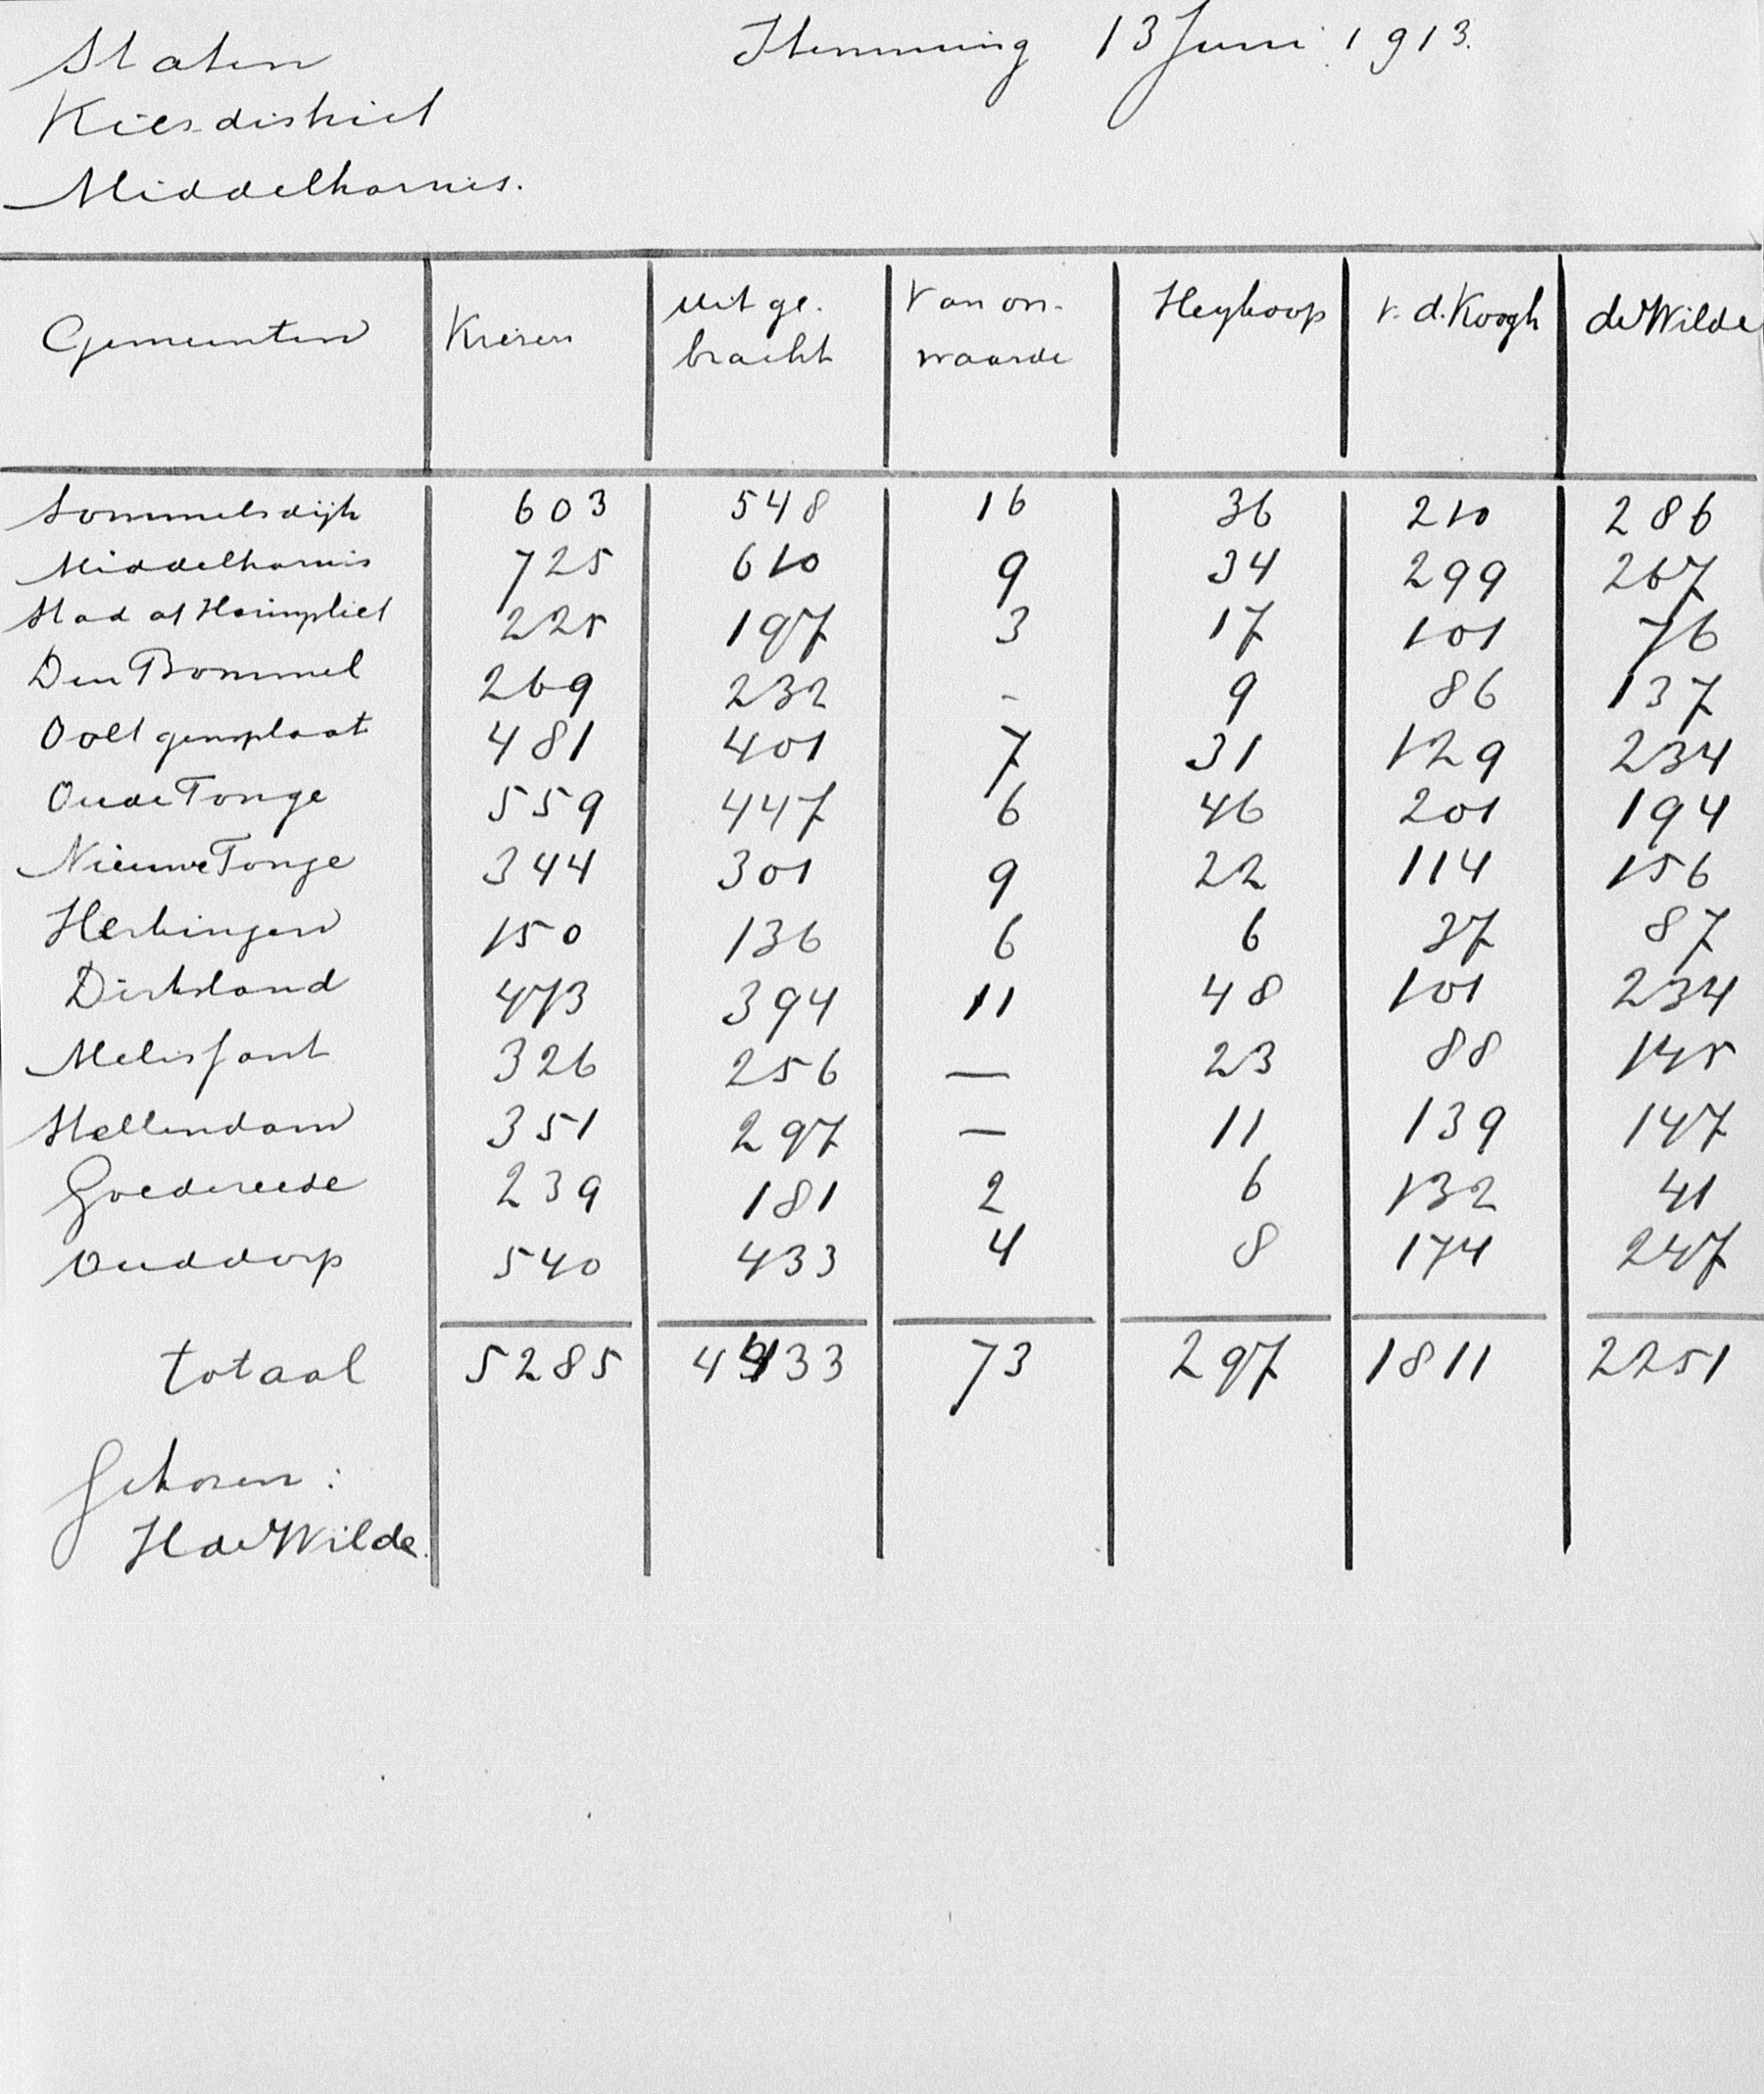 Staten
Kiesdistrict
Middelharnis.
Stemming 13 Juni 1913.
Gemeenten Kiezers Uitge- bracht Van on- waarde Heykoop v. d. Koogh de Wilde
Sommelsdijk 603 548 16 36 210 286
Middelharnis 725 610 9 34 299 267
Stad at Haringvliet 225 197 3 17 101 76
Den Bommel 269 232 - 9 86 137
Ooltgensplaat 481 401 7 31 129 234
Oude Tonge 559 447 6 46 201 194
Nieuwe Tonge 344 301 9 22 114 156
Herkingen 150 136 6 6 37 87
Dirksland 473 394 11 48 101 234
Melissant 326 256 — 23 88 145
Stellendam 351 297 — 11 139 147
Goedereede 239 181 2 6 132 41
Ouddorp 540 433 4 8 174 247
totaal 5285 4433 73 297 1811 2251
Gekozen:
H de Wilde.